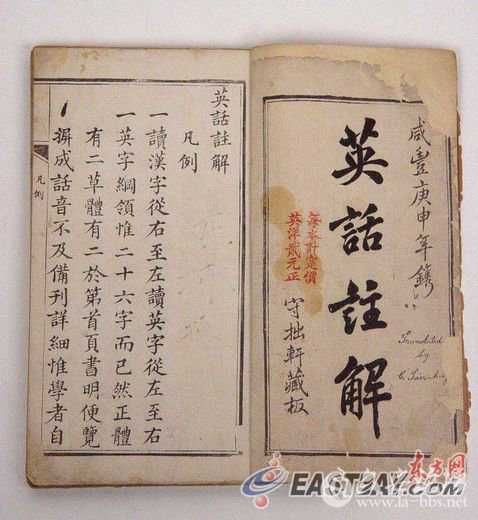 咸豐庚申年鐫
英話註解
守拙軒藏板
每本計定價
英洋貳元正
Translated
by
英話註解
凡例
一讀漢字從右至左讀英字從左至右
一英字綱領惟二十六字而已然正體
有二草體有二於第首頁書明便覽
摒成話音不及備刊詳細惟學者自
凡例
東方网
EASTDAY.com
www.la-bbs.net